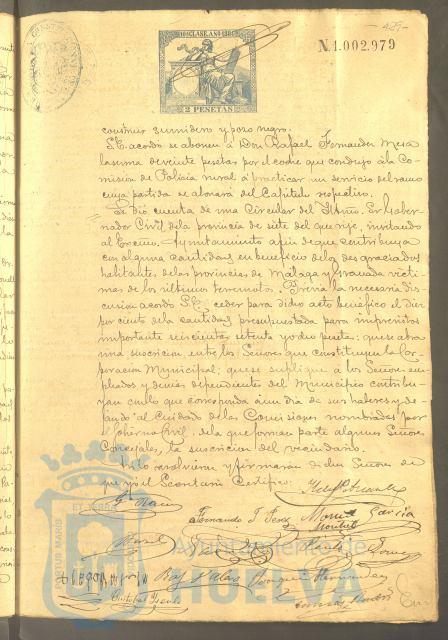 429
10ª CLASE AÑO 188
N.1.002.979
2 PESETAS
construir sumidero y pozo negro.
S.E. acordó se abonen á Don Rafael Fernandez Mesa
la suma de veinte pesetas por el coche que condujo á la Co-
misión de Policía rural á practicar un servicio del ramo
cuya partida se abonará del Capítulo respectivo.
Se dió cuenta de una Circular del Iltmo. Sr. Gober-
nador Civil de la provincia de siete del que rije, invitando
al Excmo. Ayuntamiento a fin de que contribuya
con alguna cantidad en beneficio de los desgraciados
habitantes de las provincias de Málaga y Granada vícti-
mas de los últimos terremotos. Previa la necesaria dis-
cusión acordó S.E. ceder para dicho acto benéfico el diez
por ciento de la cantidad presupuestada para imprevistos
importante seiscientas setenta y dos pesetas: que se abra
una suscrición entre los Señores que constituyen la Cor-
poración Municipal; que se suplique á los Señores em-
pleados y demás dependientes del Municipio contribu-
yan con lo que corresponda á un dia de sus haberes y de-
jando al Cuidado de las Comisiones nombradas por
el Gobierno Civil, de la que forman parte algunos Señores
Concejales, la suscrición del vecindario.
Así lo resolvieron y firmarán dichos Señores de
que yo el Secretario Certifico.
Fernando
Manuel García
Ayuntamiento de
HUELVA